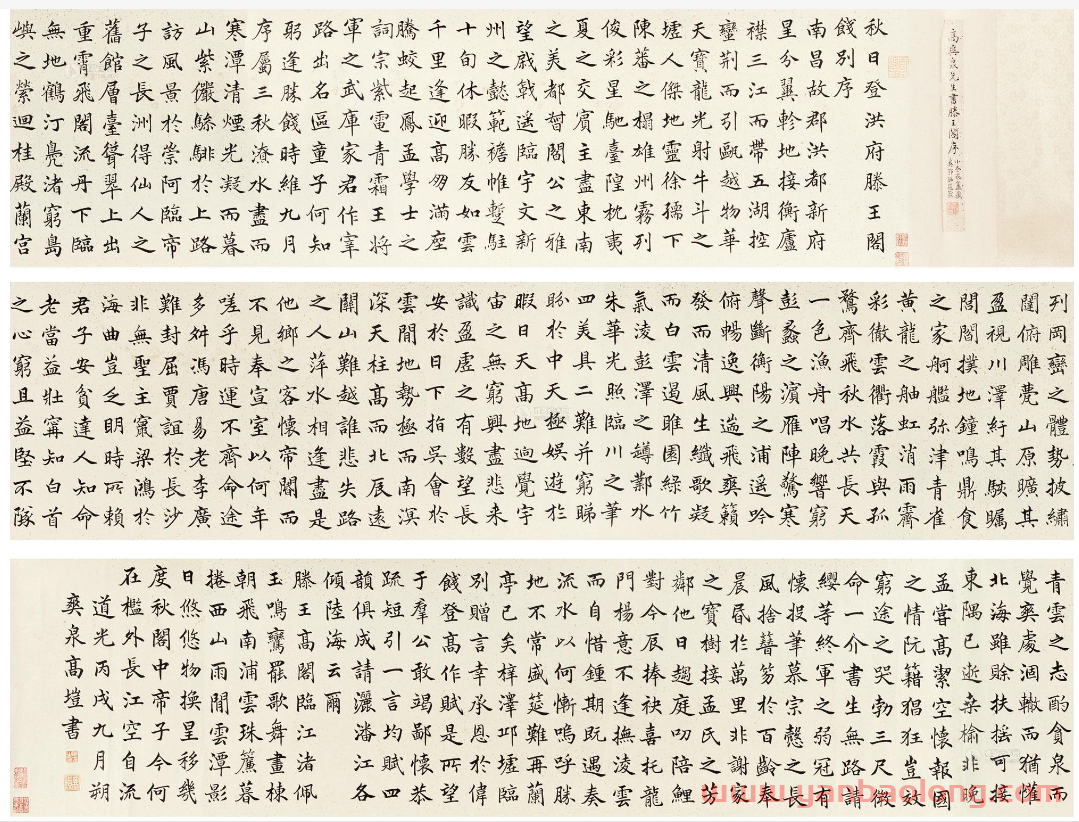 高爽泉先生書滕王閣序
秋日登洪府滕王閣
餞別序
南昌故郡洪都新府
星分翼軫地接衡廬
襟三江而帶五湖控
蠻荊而引甌越物華
天寶龍光射牛斗之
墟人傑地靈徐孺下
陳蕃之榻雄州霧列
俊彩星馳臺隍枕夷
夏之交賓主盡東南
之美都督閻公之雅
望棨戟遙臨宇文新
州之懿範襜帷暫駐
十旬休暇勝友如雲
千里逢迎高朋滿座
騰蛟起鳳孟學士之
詞宗紫電青霜王將
軍之武庫家君作宰
路出名區童子何知
躬逢勝餞時維九月
序屬三秋潦水盡而
寒潭清煙光凝而暮
山紫儼驂騑於上路
訪風景於崇阿臨帝
子之長洲得仙人之
舊館層臺聳翠上出
重霄飛閣流丹下臨
無地鶴汀鳧渚窮島
嶼之縈迴桂殿蘭宮
列岡巒之體勢披繡
闥俯雕甍山原曠其
盈視川澤紆其駭矚
閭閻撲地鐘鳴鼎食
之家舸艦弥津青雀
黃龍之舳虹消雨霽
彩徹雲衢落霞與孤
鶩齊飛秋水共長天
一色漁舟唱晚響窮
彭蠡之濱雁陣驚寒
聲斷衡陽之浦遥吟
俯暢逸興遄飛爽籟
發而清風生纖歌凝
而白雲遏睢園綠竹
氣淩彭澤之罇鄴水
朱華光照臨川之筆
四美具二難并窮睇
眄於中天極娛遊於
暇日天高地迥覺宇
宙之無窮興盡悲來
識盈虛之有數望長
安於日下指吳會於
雲間地勢極而南溟
深天柱高而北辰遠
關山難越誰悲失路
之人萍水相逢盡是
他鄉之客懷帝閽而
不見奉宣室以何年
嗟乎時運不齊命途
多舛馮唐易老李廣
難封屈賈誼於長沙
非無聖主竄梁鴻於
海曲豈乏明時所賴
君子安貧達人知命
老當益壯甯知白首
之心窮且益堅不墜
青雲之志酌貪泉而
覺爽處涸轍而猶懽
北海雖賒扶搖可接
東隅已逝桑榆非晚
孟嘗高潔空懷報國
之情阮籍猖狂豈效
窮途之哭勃三尺微
命一介書生無路請
纓等終軍之弱冠有
懷投筆慕宗愨之長
風捨簪笏於百齡奉
晨昏於萬里非謝家
之寶樹接孟氏之芳
鄰他日趨庭叨陪鯉
對今辰捧袂喜托龍
門楊意不逢撫淩雲
而自惜鍾期既遇奏
流水以何慚嗚呼勝
地不常盛筵難再蘭
亭已矣梓澤邱墟臨
別贈言幸承恩於偉
餞登高作賦是所望
于羣公敢竭鄙懷恭
疏短引一言均賦四
韻俱成請灑潘江各
傾陸海云爾
滕王高閣臨江渚佩
玉鳴鸞罷歌舞畫棟
朝飛南浦雲珠簾暮
捲西山雨閒雲潭影
日悠悠物換星移幾
度秋閣中帝子今何
在檻外長江空自流
道光丙戌九月朔
爽泉高塏書
www.yanbaolong.com